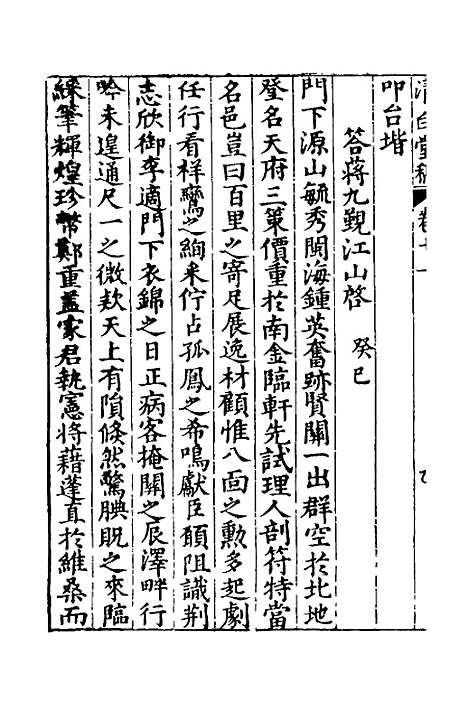 清白堂稿 卷十一
叩台堦
答蔣九覲江山啓 癸巳
門下源山毓秀閩海鍾英奮跡賢關一出群空於北地
登名天府三策價重於南金臨軒先試理人剖符特當
名邑豈曰百里之寄足展逸材顧惟八面之勳多起劇
任行看祥鸞之絢釆佇占孤鳳之希鳴獻臣願阻識荆
志欣御李適門下衣錦之日正病客掩關之辰澤畔行
吟未遑通尺一之微欵天上有隕倐然驚腆貺之來臨
綵筆輝煌珍幣鄭重葢家君執憲將藉蓬直於維桑而